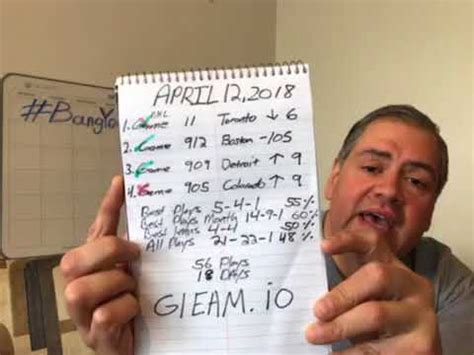 APRIL 12, 2018
#BangYo
NHL
1. Game 11 Toronto ↓ 6
2. Game 912 Boston -105
3. Game 909 Detroit ↑ 9
4. Game 905 Colorado ↑ 9
Best Plays 5-4-1 55%
Best Plays Month 14-9-1 60%
Best 4-4 50%
All Plays 21-22-1 48%
56 Plays
18 Days
GIEAM.io